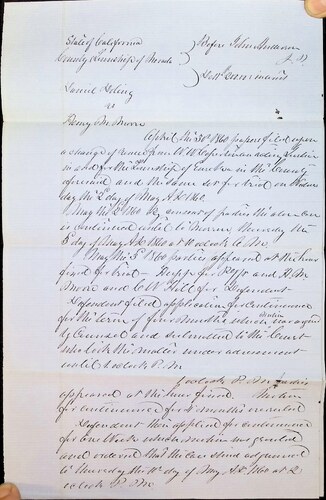 State of California
County Township of Nevada
Before John Anderson
J. P.
Daniel
vs
Henry M. Moore
April the 30th 1860 papers filed upon
a change of venue from W. W. acting Justice
in and for the Township of Eureka in the County
aforesaid and the same set for trial on
day the 2 day of May A. D. 1860.
May the 2 1860 By consent of parties the above case
is continued until to morrow Thursday the
3 day of May A. D. 1860 at 10 oclock A. M.
May the 3d 1860 parties appeared at the hour
fixed for trial for Plff and H. M.
Moore and C. W. Hill for Defendant
Defendant filed application for continuance
for the term of four months which motion was argued
by Counsel and submitted to the Court
who took the matter under advisement
until 2 oclock P. M.
2 oclock P. M. parties
appeared at the hour fixed. Motion
for continuance for 4 months overruled
Defendant then applied for continuance
for one Week which motion was granted
and ordered that the Case stand adjourned
to Thursday the 10th day of May A. D. 1860 at 2
oclock P. M.